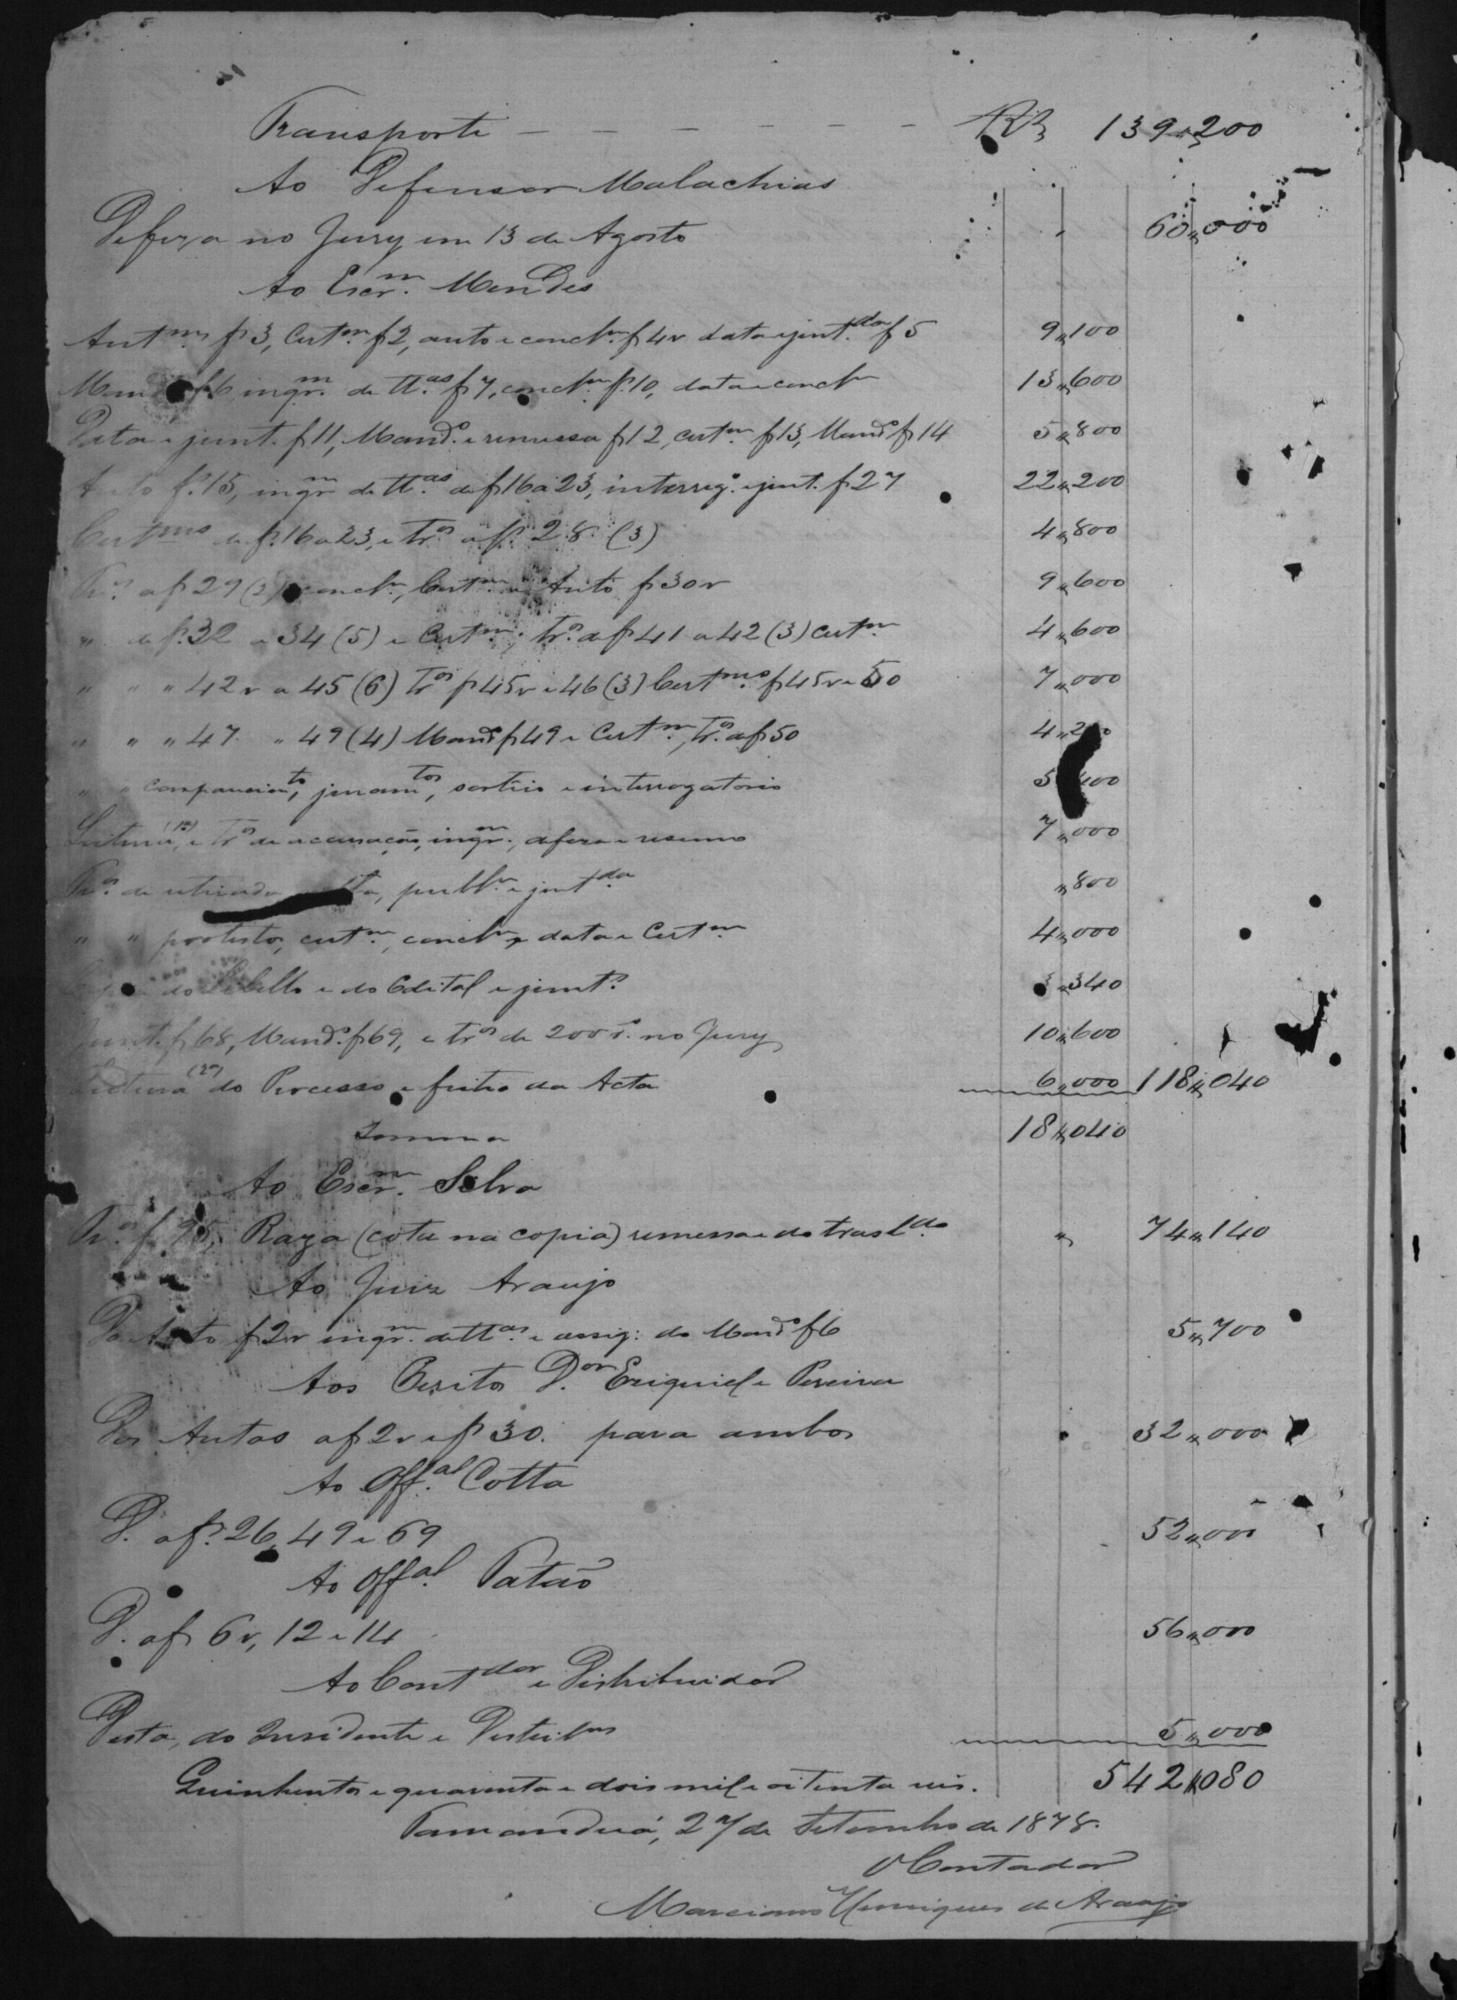 Transporte — — — — — — — Rs 139,,200
Ao Defensor Malachias
Defeza no Jury em 13 de Agosto 60,,000
Ao Escrm. Mendes
Autm. f 3, Certm. f 2, auto e conclm. f 4v data e juntda f 5 9,,100
f 6 inqrm. de ttas f 7, conclm. f. 10, data e conclm 13,,600
Data e junt. f 11, Mando. e remessa f 12, certm. f 13, Mando f 14 5,,800
Auto f. 15, inqrm. de ttas. de f 16 a 23, interrego. e junt. f 27 22,,200
Certms de f. 16 a 23, e Tros a f. 28 (3) 4,,800
a f 29 (3) conclm, Certm. e Auto f 30v 9,,600
" de f. 32 a 34 (5) e Certm.; Tros. a f 41 a 42 (3) Certm 4,,600
" " " 42v a 45 (6) Tros f 45v e 46 (3) Certms. f 45v e 50 7,,000
" " " 47. " 49 (4) Mando f 49 e Certm, Tros. a f 50 4,,2
" " comparecimto, juramtos, sorteio e interrogatorio 5
e Tros de accusação, inqrm., defeza e resumo 7,,000
de retirada publm. e juntda ,,800
" " protesto, certm., conclm, data e Certm 4,,000
do Libello e do Edital e junto. 3,,340
Junt. f 68, Mando. f 69, e tros de no Jury 10,,600
Leitura (2a) do Processo e feitio da Acta 6,,000 118,,040
Somma 118,,040
Ao Escrm. Selva
Raza (cota na copia) remessa e do trasldo 74,,140
Ao Juiz Araujo
Do Auto f 2v inqrm. de ttas. e assig: do Mando f 6 5,,700
Aos Perito Dor. Eziquiel e Pereira
Dos Autos a f 2v e f 30. para ambos 32,,000
Ao Offal. Cotta
D. a f. 26, 49 e 69 52,,000
Ao Offal. Patão
D. a f 6v, 12 e 14 56,,000
Ao Contdor e Distribuidor
Desta, do e Distribm 5,,000
Quinhentos e quarenta e dois mil e oitenta reis. 542,,080
Tamanduá, 27 de Setembro de 1878.
O Contador
Marciano Henriques de Araujo